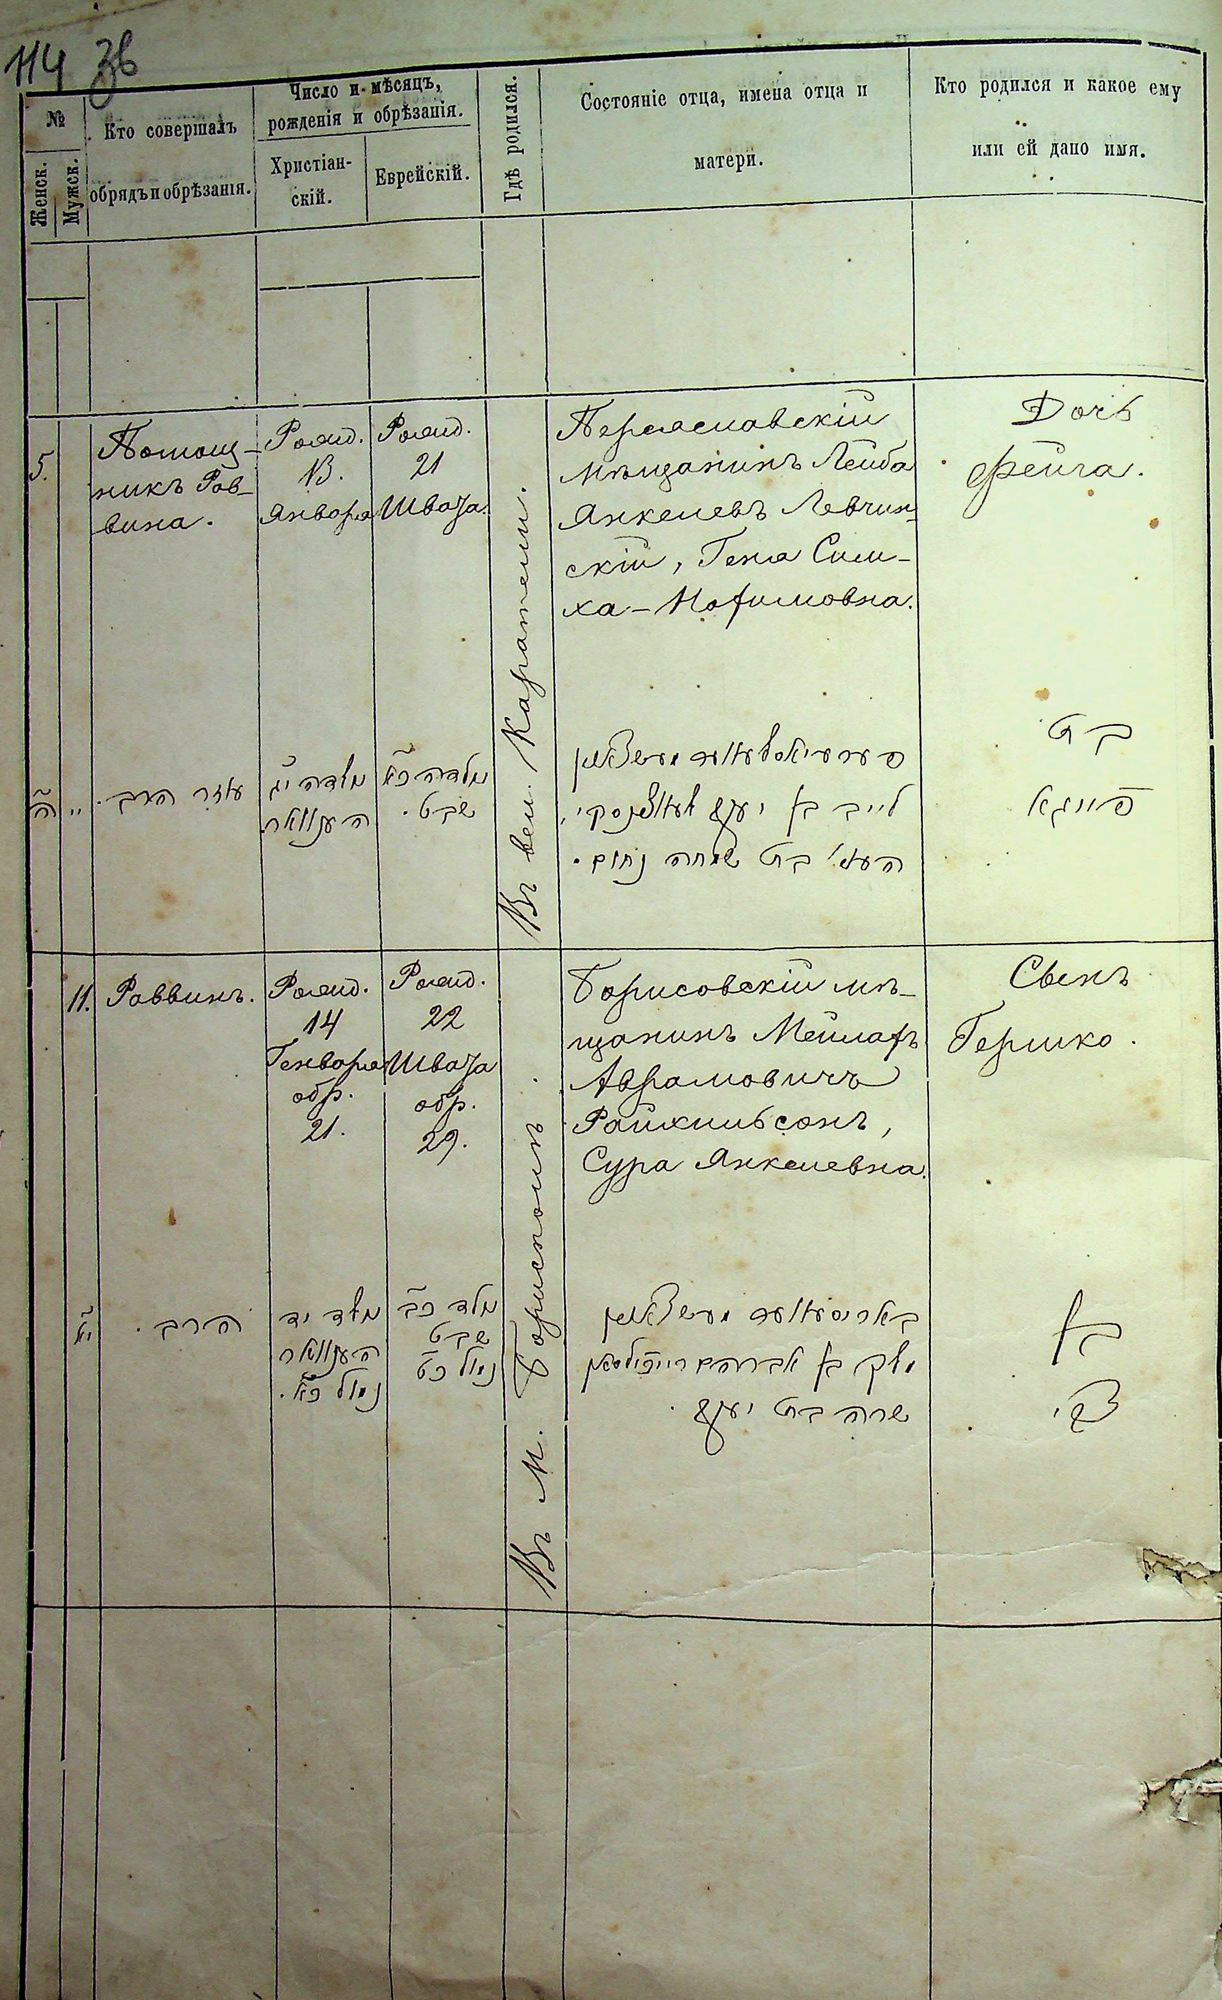 114 36
№
Женск.
Мужск.
Кто совершалъ
обрядъ и обрѣзанія.
Число и мѣсяцъ,
рожденія и обрѣзанія.
Христіан-
скій.
Еврейскій.
Гдѣ родился.
Состояніе отца, имена отца и
матери.
Кто родился и какое ему
или ей дано имя.
5.
Помощ-
никъ Рав-
вина.
Рожд.
13.
Января
Рожд.
21
Швата.
Въ вел. Каратели.
Переяславскій
мѣщанинъ Лейба
Янкелевъ Левчин-
скій, Геня Сим-
ха-Нохимовна.
Дочь
Фейга.
ה
"
עוזר הרב.
נולדה יג
יענוואר
נולדה כא
שבט.
לייב בן יעקב
בת שמחה נחום.
בת
פייגא
11.
Раввинъ.
Рожд.
14
Генваря
обр.
21.
Рожд.
22
Швата
обр.
29.
Въ м. Борисполѣ.
Борисовскій мѣ-
щанинъ Мейлахъ
Аврамовичъ
Райхильсонъ,
Сура Янкелевна.
Сынъ
Гершко.
יא
הרב.
נולד יד
יענוואר
נימול כא.
נולד כב
שבט
נימול כט
בן אברהם
שרה בת יעקב.
בן
צבי